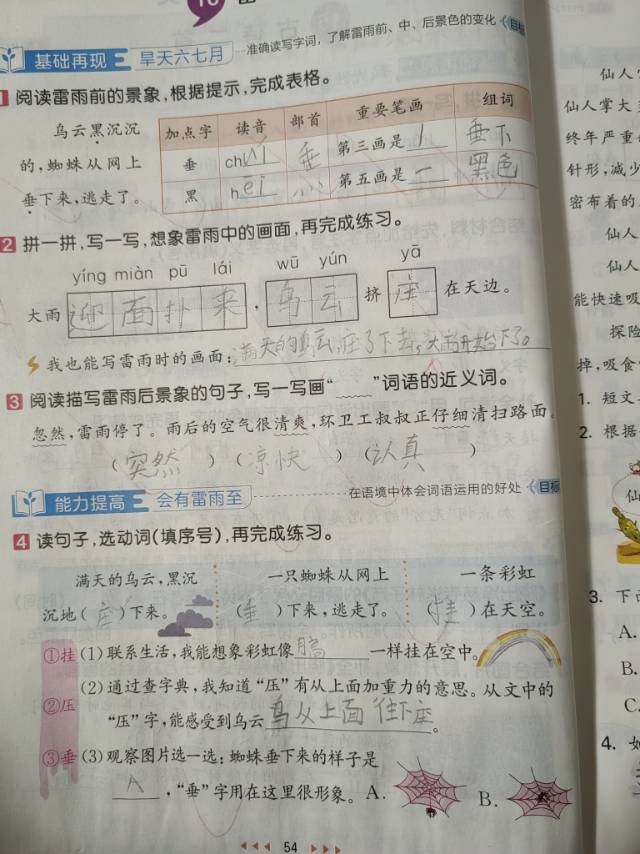 基础再现 旱天六七月 准确读写字词，了解雷雨前、中、后景色的变化 目标
1 阅读雷雨前的景象,根据提示,完成表格。
乌云黑沉沉
的,蜘蛛从网上
垂下来,逃走了。
加点字 读音 部首 重要笔画 组词
垂 chuí 垂 第三画是 丨 垂下
黑 hēi 灬 第五画是 一 黑色
2 拼一拼,写一写,想象雷雨中的画面,再完成练习。
yíng miàn pū lái wū yún yā
大雨 迎面扑来 , 乌云 挤 在天边。
我也能写雷雨时的画面:
3 阅读描写雷雨后景象的句子,写一写画“ ”词语的近义词。
忽然,雷雨停了。雨后的空气很清爽,环卫工叔叔正仔细清扫路面。
(突然) (凉快) (认真)
能力提高 会有雷雨至 在语境中体会词语运用的好处 目标
4 读句子,选动词(填序号),再完成练习。
满天的乌云,黑沉 一只蜘蛛从网上 一条彩虹
沉地( )下来。 (垂)下来,逃走了。 (挂)在天空。
①挂 (1)联系生活,我能想象彩虹像 一样挂在空中。
(2)通过查字典,我知道“压”有从上面加重力的意思。从文中的
②压 “压”字,能感受到乌云 从上面往下 。
③垂 (3)观察图片选一选:蜘蛛垂下来的样子是
A ,“垂”字用在这里很形象。 A. B.
54
仙人
仙人掌大
终年严重
针形,减少
密布着的
仙人
仙人
能快速吸
探险
掉,吸食
1. 短文
2. 根据
仙
3. 下
A.
B.
C.
4. 如